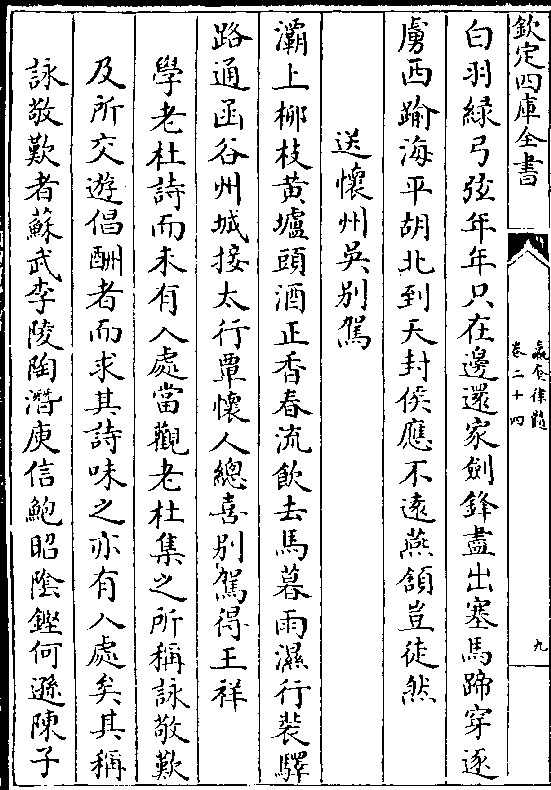 欽定四庫全書
瀛奎律髓
卷二十四
九
白羽緑弓弦年年只在邊還家劍鋒盡出塞馬蹄穿逐
虜西踰海平胡北到天封侯應不遠燕頷豈徒然
送懷州吳别駕
灞上柳枝黄壚頭酒正香春流飲去馬暮雨濕行裝驛
路通函谷州城接太行覃懷人總喜别駕得王祥
學老杜詩而未有入處當觀老杜集之所稱詠敬歎
及所交遊倡酬者而求其詩味之亦有入處矣其稱
詠敬歎者蘇武李陵陶潛庾信鮑昭隂鏗何遜陳子